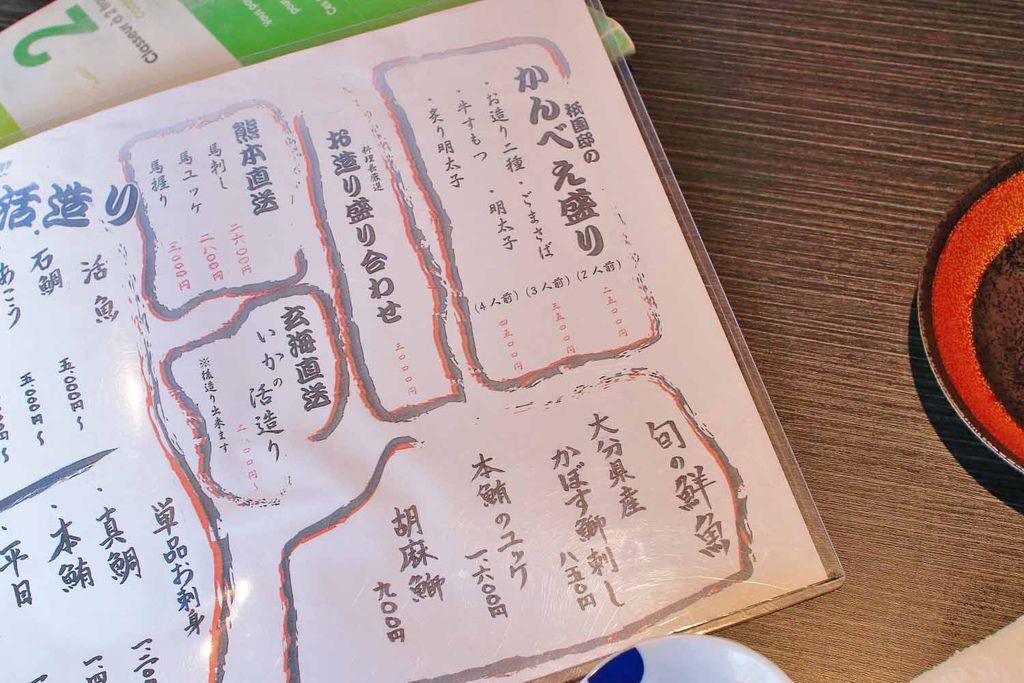 祇園邸の
かんべえ盛り
・お造り二種・ごまさば
・牛すもつ・明太子
・炙り明太子
(2人前)二五〇〇円
(3人前)三五〇〇円
(4人前)四五〇〇円
料理長厳選
お造り盛り合わせ
三〇〇〇円
熊本直送
馬刺し 二六〇〇円
馬ユッケ 二八〇〇円
馬握り 三〇〇〇円
玄海直送
いかの活造り
※後造り出来ます
旬の鮮魚
大分県産
かぼす鰤刺し
八五〇円
本鮪のユッケ
一、六〇〇円
胡麻鰤
九〇〇円
活造り
活魚
石鯛 五、〇〇〇円〜
あこう 五、〇〇〇円〜
単品お刺身
・真鯛
・本鮪
・平目
2
Classeur à 2
Vous
pour